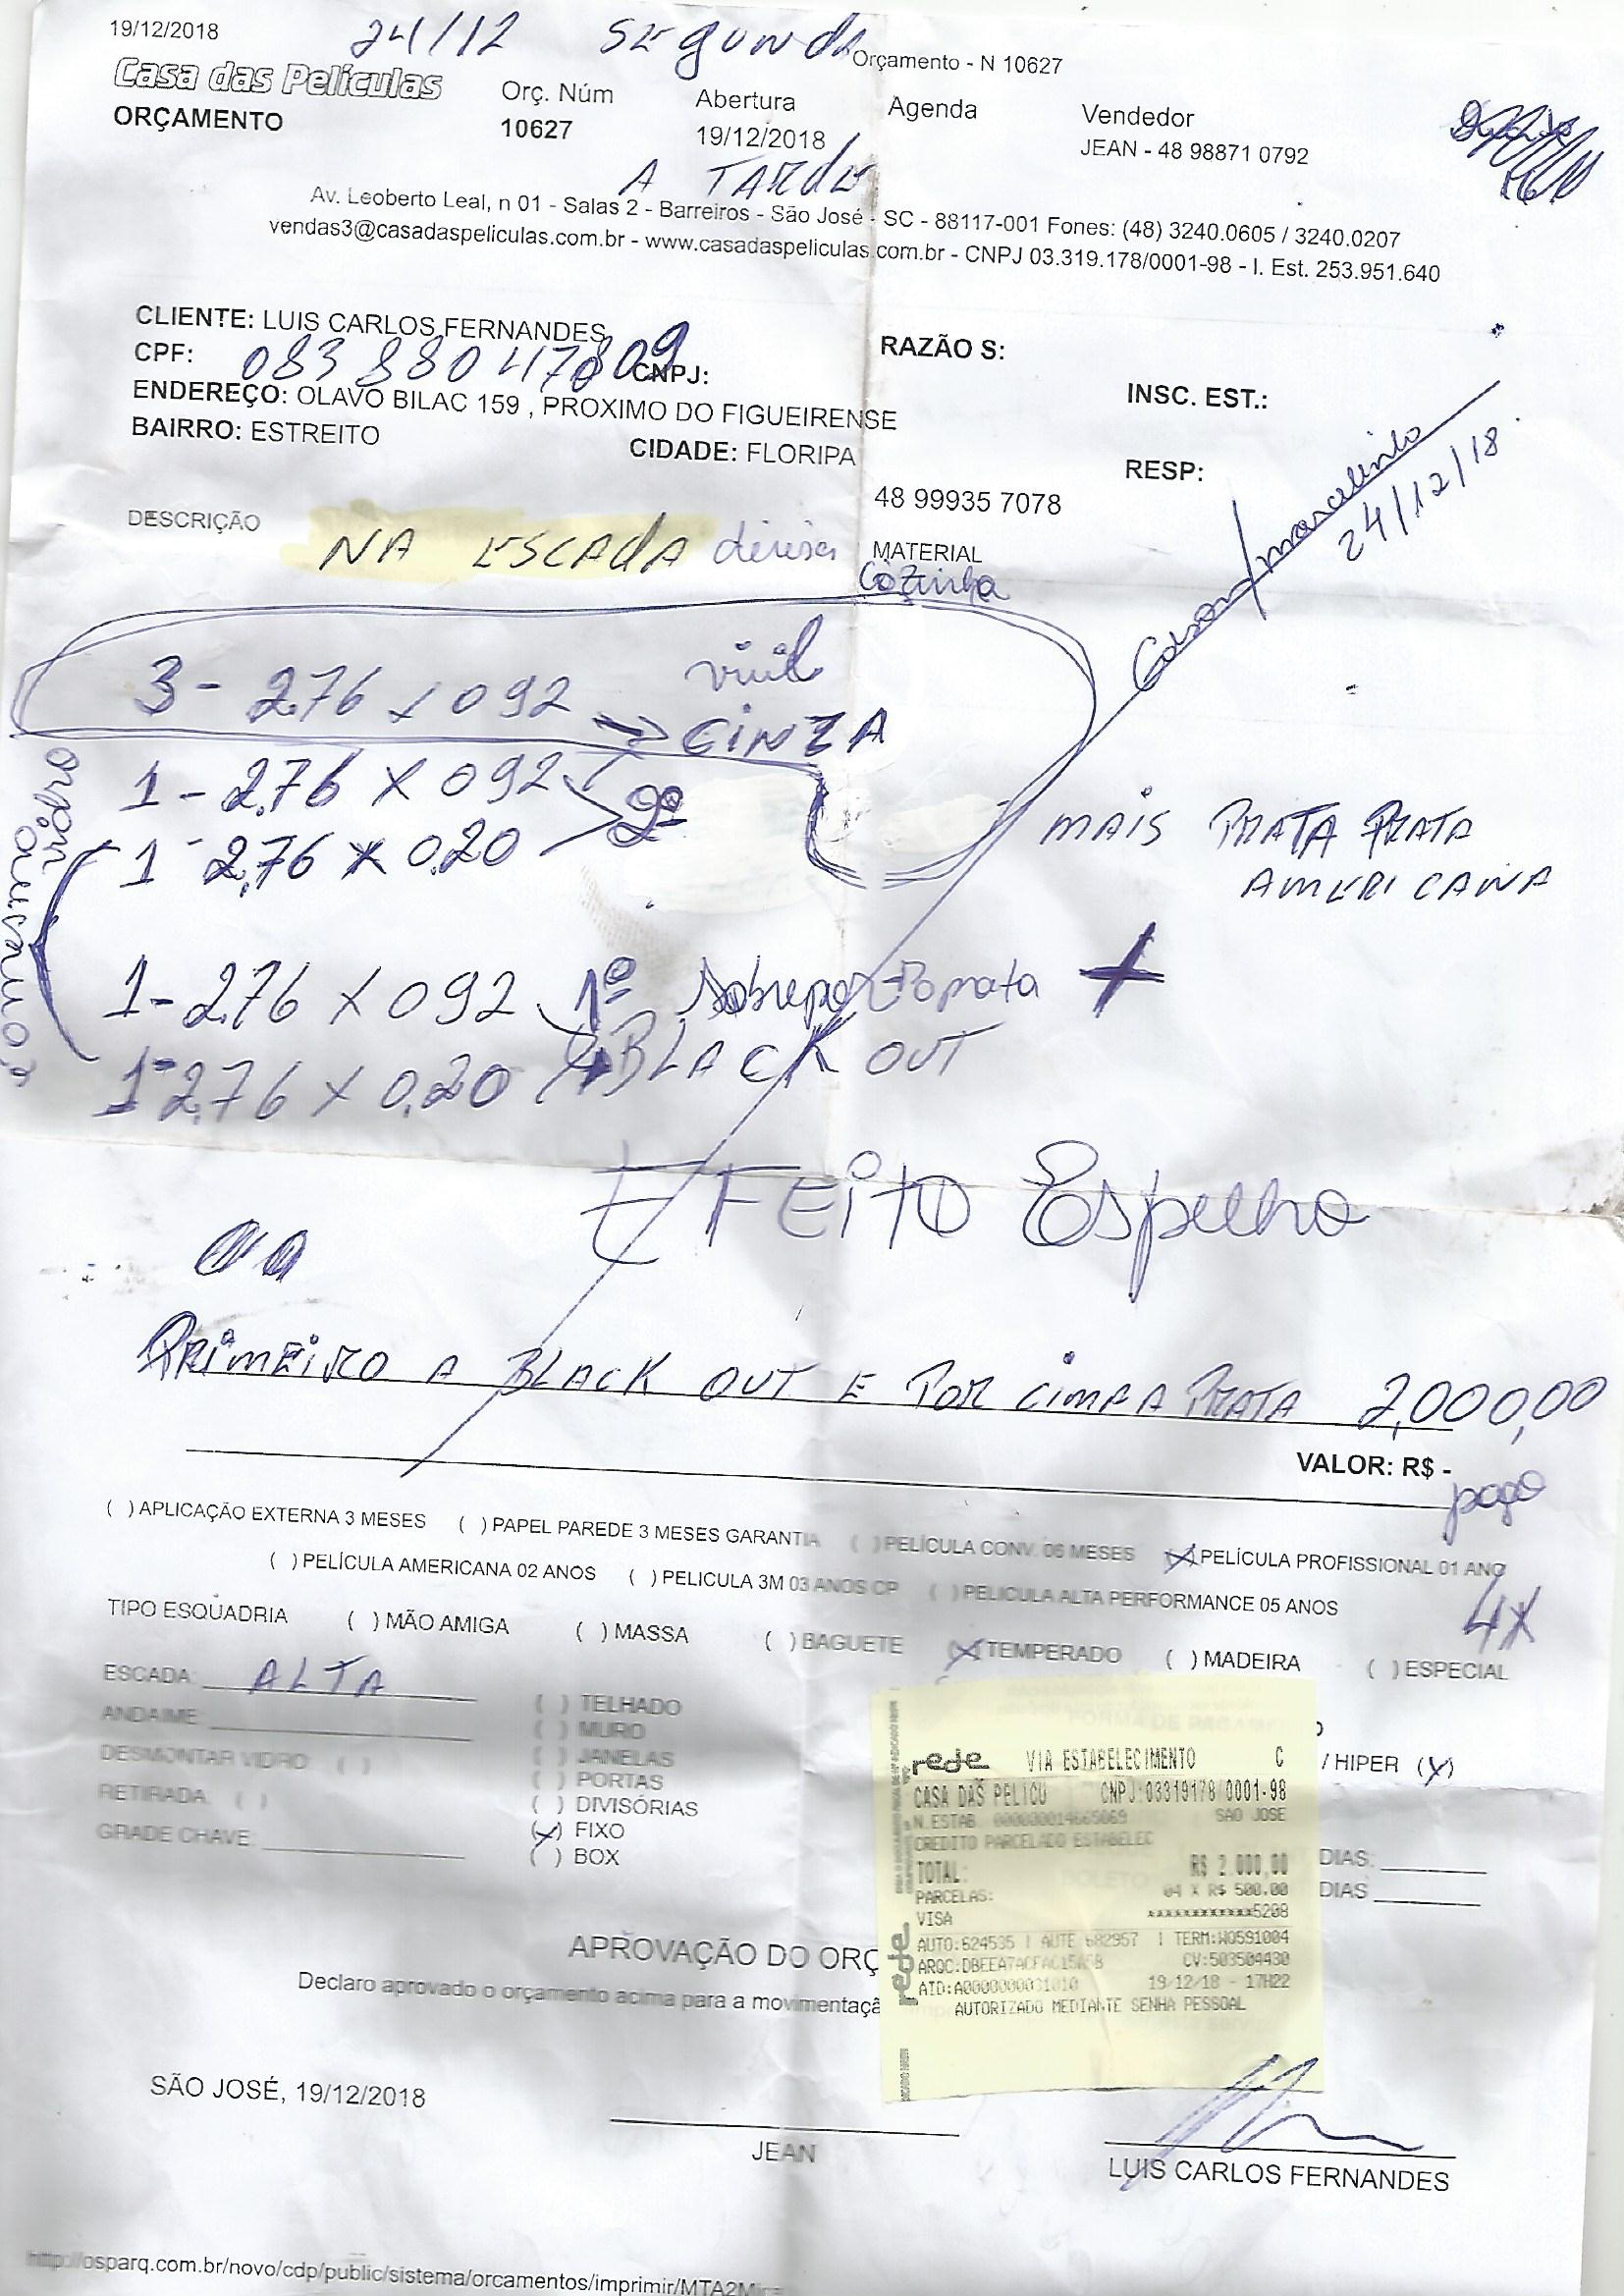 19/12/2018
24/12 SEGUNDA
Orçamento - N 10627
Casa das Películas
ORÇAMENTO
Orç. Núm
10627
Abertura
19/12/2018
Agenda
Vendedor
JEAN - 48 98871 0792
A TARDE
Av. Leoberto Leal, n 01 - Salas 2 - Barreiros - São José - SC - 88117-001 Fones: (48) 3240.0605 / 3240.0207
vendas3@casadaspeliculas.com.br - www.casadaspeliculas.com.br - CNPJ 03.319.178/0001-98 - I. Est. 253.951.640
CLIENTE: LUIS CARLOS FERNANDES
RAZÃO S:
CPF: 083 880 47809 CNPJ:
INSC. EST.:
ENDEREÇO: OLAVO BILAC 159 , PROXIMO DO FIGUEIRENSE
BAIRRO: ESTREITO
CIDADE: FLORIPA
RESP:
48 99935 7078
24/12/18
DESCRIÇÃO
NA ESCADA divisa
MATERIAL
Cozinha
Edson/marcelinho
3 - 2.76 x 092
vinil
CINZA
1 - 2.76 X 092
2º
1 - 2,76 X 0.20
vidro
MAIS PRATA PRATA
AMERICANA
1 - 2.76 X 092 1º Sobrepor prata +
BLACK OUT
1 - 2.76 X 0.20
EFEITO Espelho
PRIMEIRO A BLACK OUT E POR CIMA A PRATA 2,000,00
VALOR: R$ -
pago
( ) APLICAÇÃO EXTERNA 3 MESES ( ) PAPEL PAREDE 3 MESES GARANTIA ( ) PELÍCULA CONV. 06 MESES (X) PELÍCULA PROFISSIONAL 01 ANO
( ) PELÍCULA AMERICANA 02 ANOS ( ) PELICULA 3M 03 ANOS CP ( ) PELICULA ALTA PERFORMANCE 05 ANOS
4X
TIPO ESQUADRIA ( ) MÃO AMIGA ( ) MASSA ( ) BAGUETE (X) TEMPERADO ( ) MADEIRA ( ) ESPECIAL
ESCADA: ALTA
( ) TELHADO
ANDAIME:
( ) MURO
DESMONTAR VIDRO: ( )
( ) JANELAS
( ) PORTAS
RETIRADA: ( )
( ) DIVISÓRIAS
GRADE CHAVE:
(X) FIXO
( ) BOX
/ HIPER (X)
DIAS:
DIAS
rede VIA ESTABELECIMENTO C
CASA DAS PELICU CNPJ:03319178/0001-98
N.ESTAB. 000000014665069 SAO JOSE
CREDITO PARCELADO ESTABELEC
TOTAL: R$ 2.000,00
PARCELAS: 04 X R$ 500.00
VISA ************5208
AUTO:624535 | AUTE 682957 | TERM:WQ591004
CV:503504430
AID:A0000000031010 19/12/18 - 17H22
AUTORIZADO MEDIANTE SENHA PESSOAL
rede
APROVAÇÃO DO ORÇ
Declaro aprovado o orçamento acima para a movimentaçã
SÃO JOSÉ, 19/12/2018
JEAN
LUIS CARLOS FERNANDES
http://osparq.com.br/novo/cdp/public/sistema/orcamentos/imprimir/MTA2M